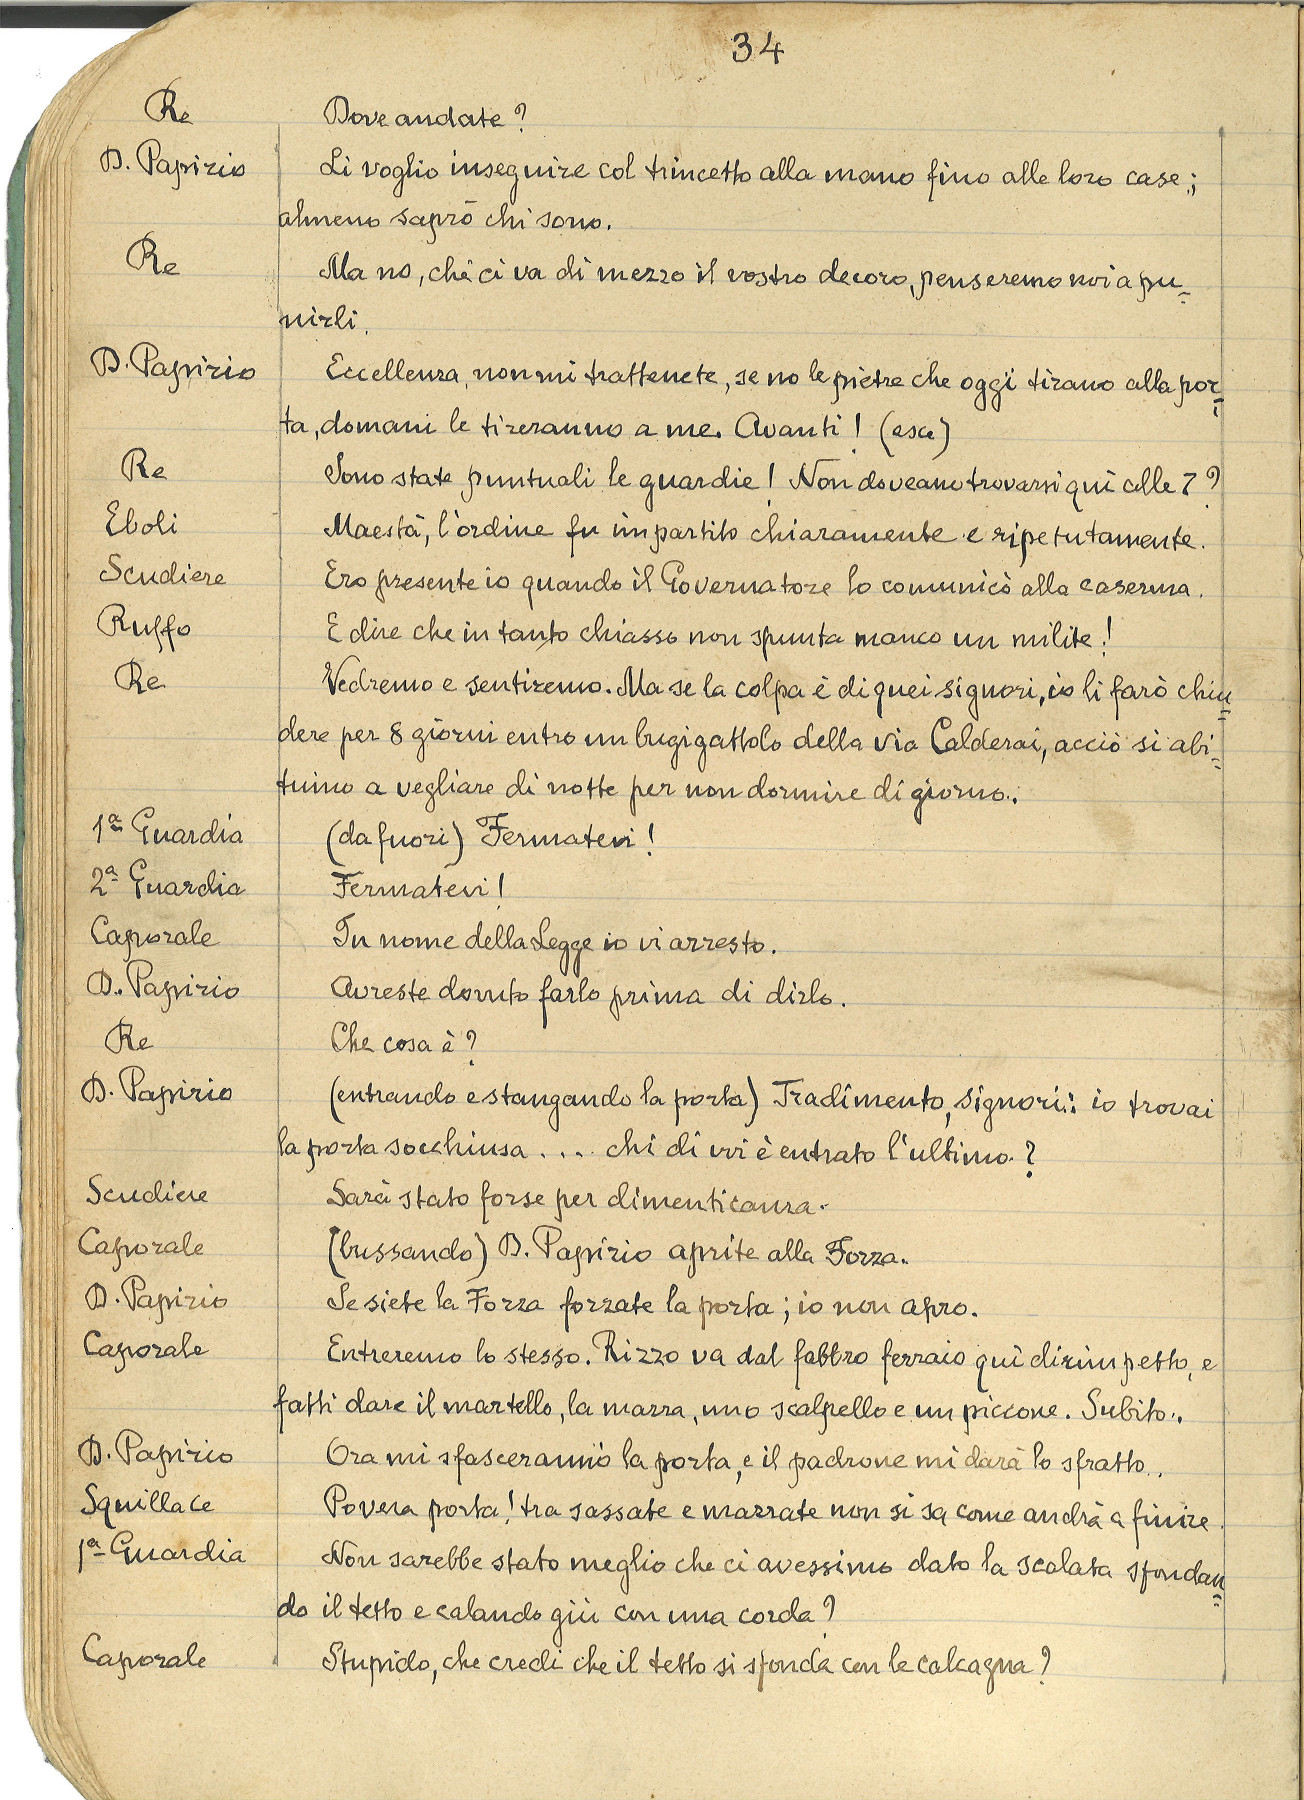 34
Re Dove andate?
D. Papirio Li voglio inseguire col trincetto alla mano fino alle loro case;
almeno saprò chi sono.
Re Ma no, chè ci va di mezzo il vostro decoro, penseremo noi a pu=
nirli.
D. Papirio Eccellenza, non mi trattenete, se no le pietre che oggi tirano alla por=
ta, domani le tireranno a me. Avanti! (esce)
Re Sono state puntuali le guardie! Non doveano trovarsi quì alle 7?
Eboli Maestà, l'ordine fu impartito chiaramente e ripetutamente.
Scudiere Ero presente io quando il Governatore lo comunicò alla caserma.
Ruffo E dire che in tanto chiasso non spunta manco un milite!
Re Vedremo e sentiremo. Ma se la colpa è di quei signori, io li farò chiu=
dere per 8 giorni entro un bugigattolo della via Calderai, acciò si abi=
tuino a vegliare di notte per non dormire di giorno.
1ª Guardia (da fuori) Fermatevi!
2ª Guardia Fermatevi!
Caporale In nome della Legge io vi arresto.
D. Papirio Avreste dovuto farlo prima di dirlo.
Re Che cosa è?
D. Papirio (entrando e stangando la porta) Tradimento, signori: io trovai
la porta socchiusa .... chi di voi è entrato l'ultimo?
Scudiere Sarà stato forse per dimenticanza.
Caporale (bussando) D. Papirio aprite alla Forza.
D. Papirio Se siete la Forza forzate la porta; io non apro.
Caporale Entreremo lo stesso. Rizzo va dal fabbro ferraio quì dirimpetto, e
fatti dare il martello, la mazza, uno scalpello e un piccone. Subito.
D. Papirio Ora mi sfasceranno la porta, e il padrone mi darà lo sfratto.
Squillace Povera porta! tra sassate e mazzate non si sa come andrà a finire.
1ª Guardia Non sarebbe stato meglio che ci avessimo dato la scalata sfondan=
do il tetto e calando giù con una corda?
Caporale Stupido, che credi che il tetto si sfonda con le calcagna?